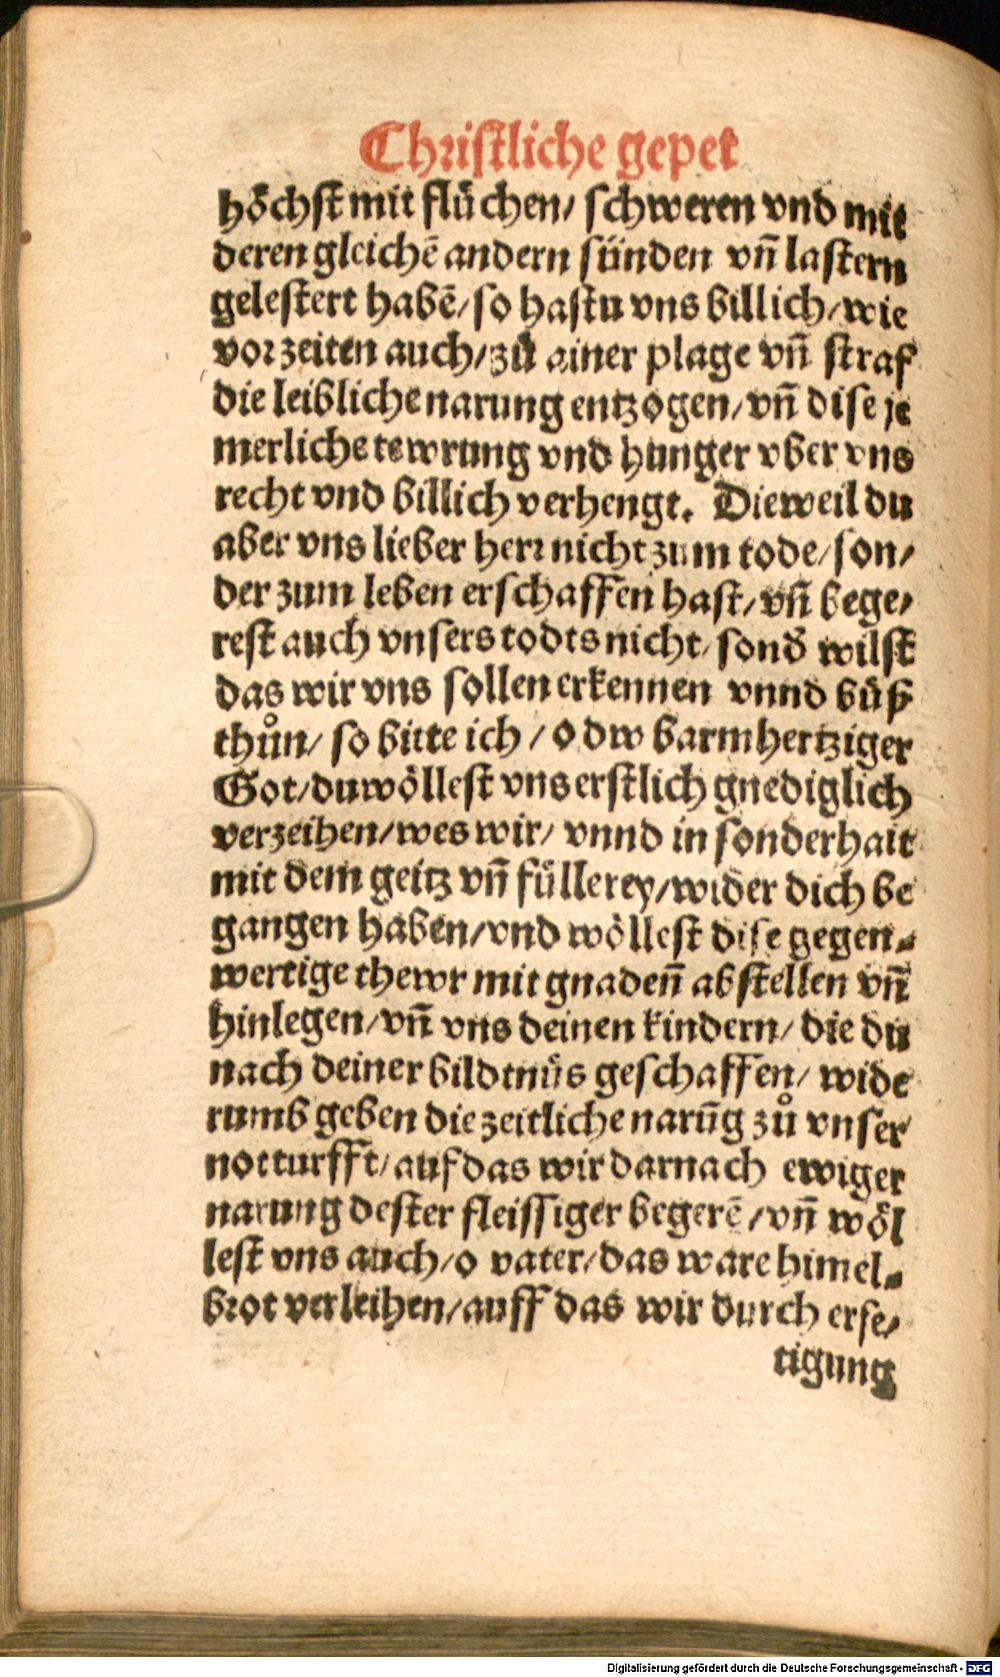 Christliche gepet
höchst mit flüchen/ schweren vnd mit
deren gleichẽ andern sünden vñ lastern
gelestert habẽ/ so hastu vns billich/ wie
vor zeiten auch/ zů ainer plage vñ straf
die leibliche narung entzogen/ vñ dise je
merliche tewrung vnd hunger vber vns
recht vnd billich verhengt. Dieweil du
aber vns lieber herr nicht zum tode/ son/
der zum leben erschaffen hast/ vñ bege/
rest auch vnsers todts nicht/ sonð wilst
das wir vns sollen erkennen vnnd bůß
thůn/ so bitte ich / o dw barmhertziger
Got/ du wöllest vns erstlich gnediglich
verzeihen/ wes wir/ vnnd in sonderhait
mit dem geitz vñ füllerey/ wider dich be
gangen haben/ vnd wöllest dise gegen-
wertige thewr mit gnadeñ abstellen vñ
hinlegen/ vñ vns deinen kindern/ die du
nach deiner bildtnüs geschaffen/ wide
rumb geben die zeitliche narũg zů vnser
notturfft/ auf das wir darnach ewiger
narung dester fleissiger begerẽ / vñ wöl
lest vns auch/ o vater/ das ware himel-
brot verleihen/ auff das wir durch erse/
tigung
Digitalisierung gefördert durch die Deutsche Forschungsgemeinschaft - DFG